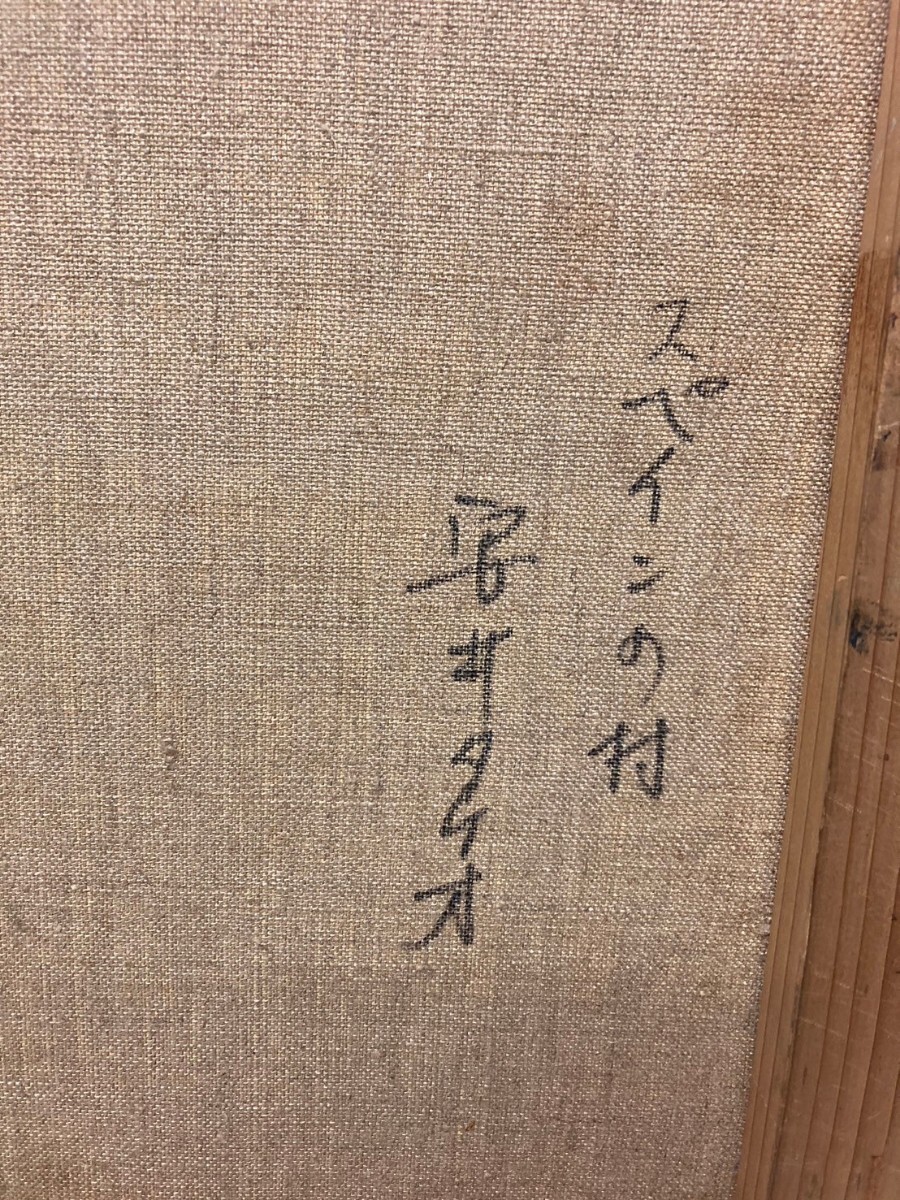 スペインの村
安井タケオ